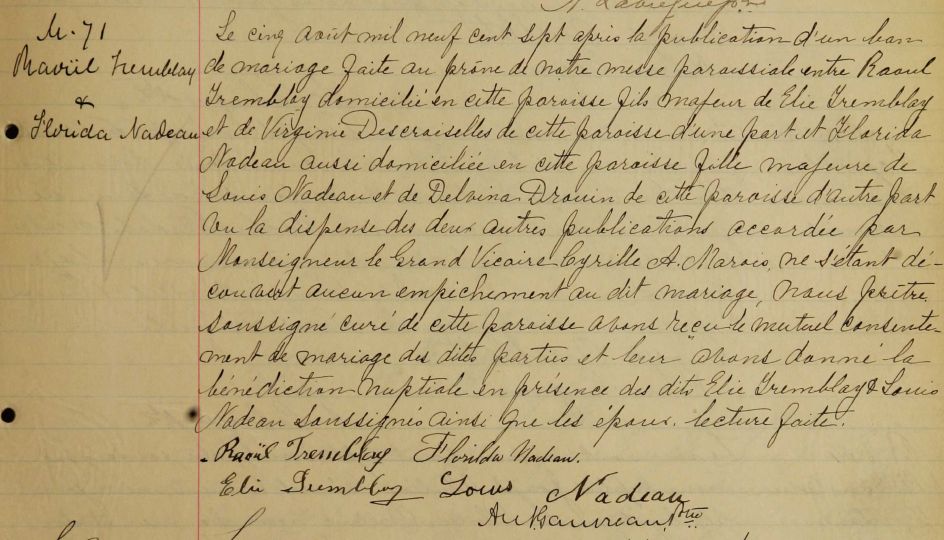 M. 71
Raoüil Tremblay
&
Florida Nadeau
Le cinq Août mil neuf cent sept après la publication d'un ban
de mariage faite au prône de notre messe paroissiale entre Raoul
Tremblay domicilié en cette paroisse fils majeur de Elie Tremblay
et de Virginie Descroiselles de cette paroisse d'une part et Florida
Nadeau aussi domiciliée en cette paroisse fille majeure de
Louis Nadeau et de Delvina Drouin de cette paroisse d'autre part
Vu la dispense des deux autres publications accordée par
Monseigneur le Grand Vicaire Cyrille A. Marois, ne s'étant dé-
couvert aucun empichement au dit mariage, nous prêtre
soussigné curé de cette paroisse avons reçu le mutuel consente-
ment de mariage des dites parties et leur avons donné la
bénédiction nuptiale en présence des dits Elie Tremblay & Louis
Nadeau soussignés ainsi que les époux. lecture faite.
Raoül Tremblay Florilda Nadeau.
Elie Tremblay Louis Nadeau
Ptre